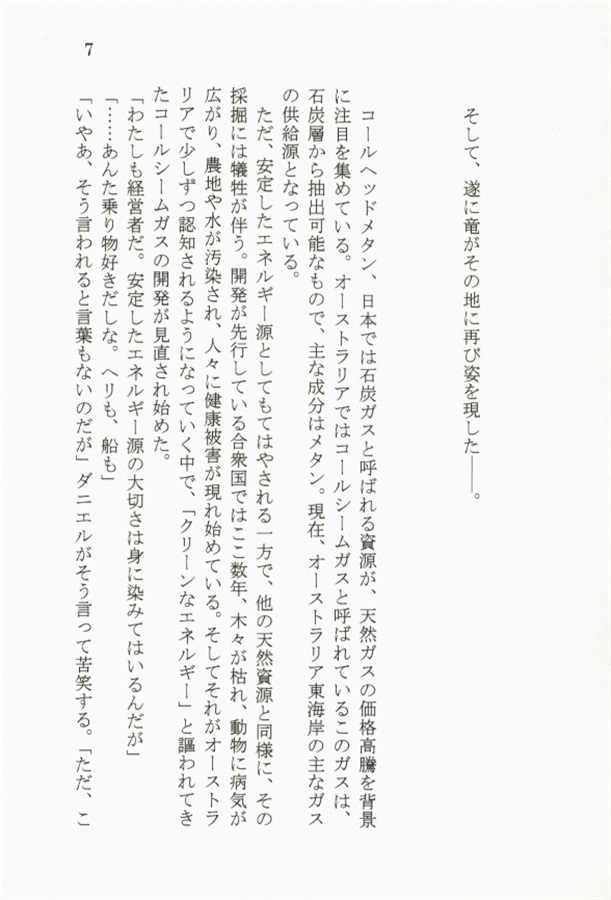 そして、遂に竜がその地に再び姿を現した――。
コールヘッドメタン、日本では石炭ガスと呼ばれる資源が、天然ガスの価格高騰を背景
に注目を集めている。オーストラリアではコールシームガスと呼ばれているこのガスは、
石炭層から抽出可能なもので、主な成分はメタン。現在、オーストラリア東海岸の主なガス
の供給源となっている。
ただ、安定したエネルギー源としてもてはやされる一方で、他の天然資源と同様に、その
採掘には犠牲が伴う。開発が先行している合衆国ではここ数年、木々が枯れ、動物に病気が
広がり、農地や水が汚染され、人々に健康被害が現れ始めている。そしてそれがオーストラ
リアで少しずつ認知されるようになっていく中で、「クリーンなエネルギー」と謳われてき
たコールシームガスの開発が見直され始めた。
「わたしも経営者だ。安定したエネルギー源の大切さは身に染みてはいるんだが」
「……あんた乗り物好きだしな。ヘリも、船も」
「いやあ、そう言われると言葉もないのだが」ダニエルがそう言って苦笑する。「ただ、こ
7